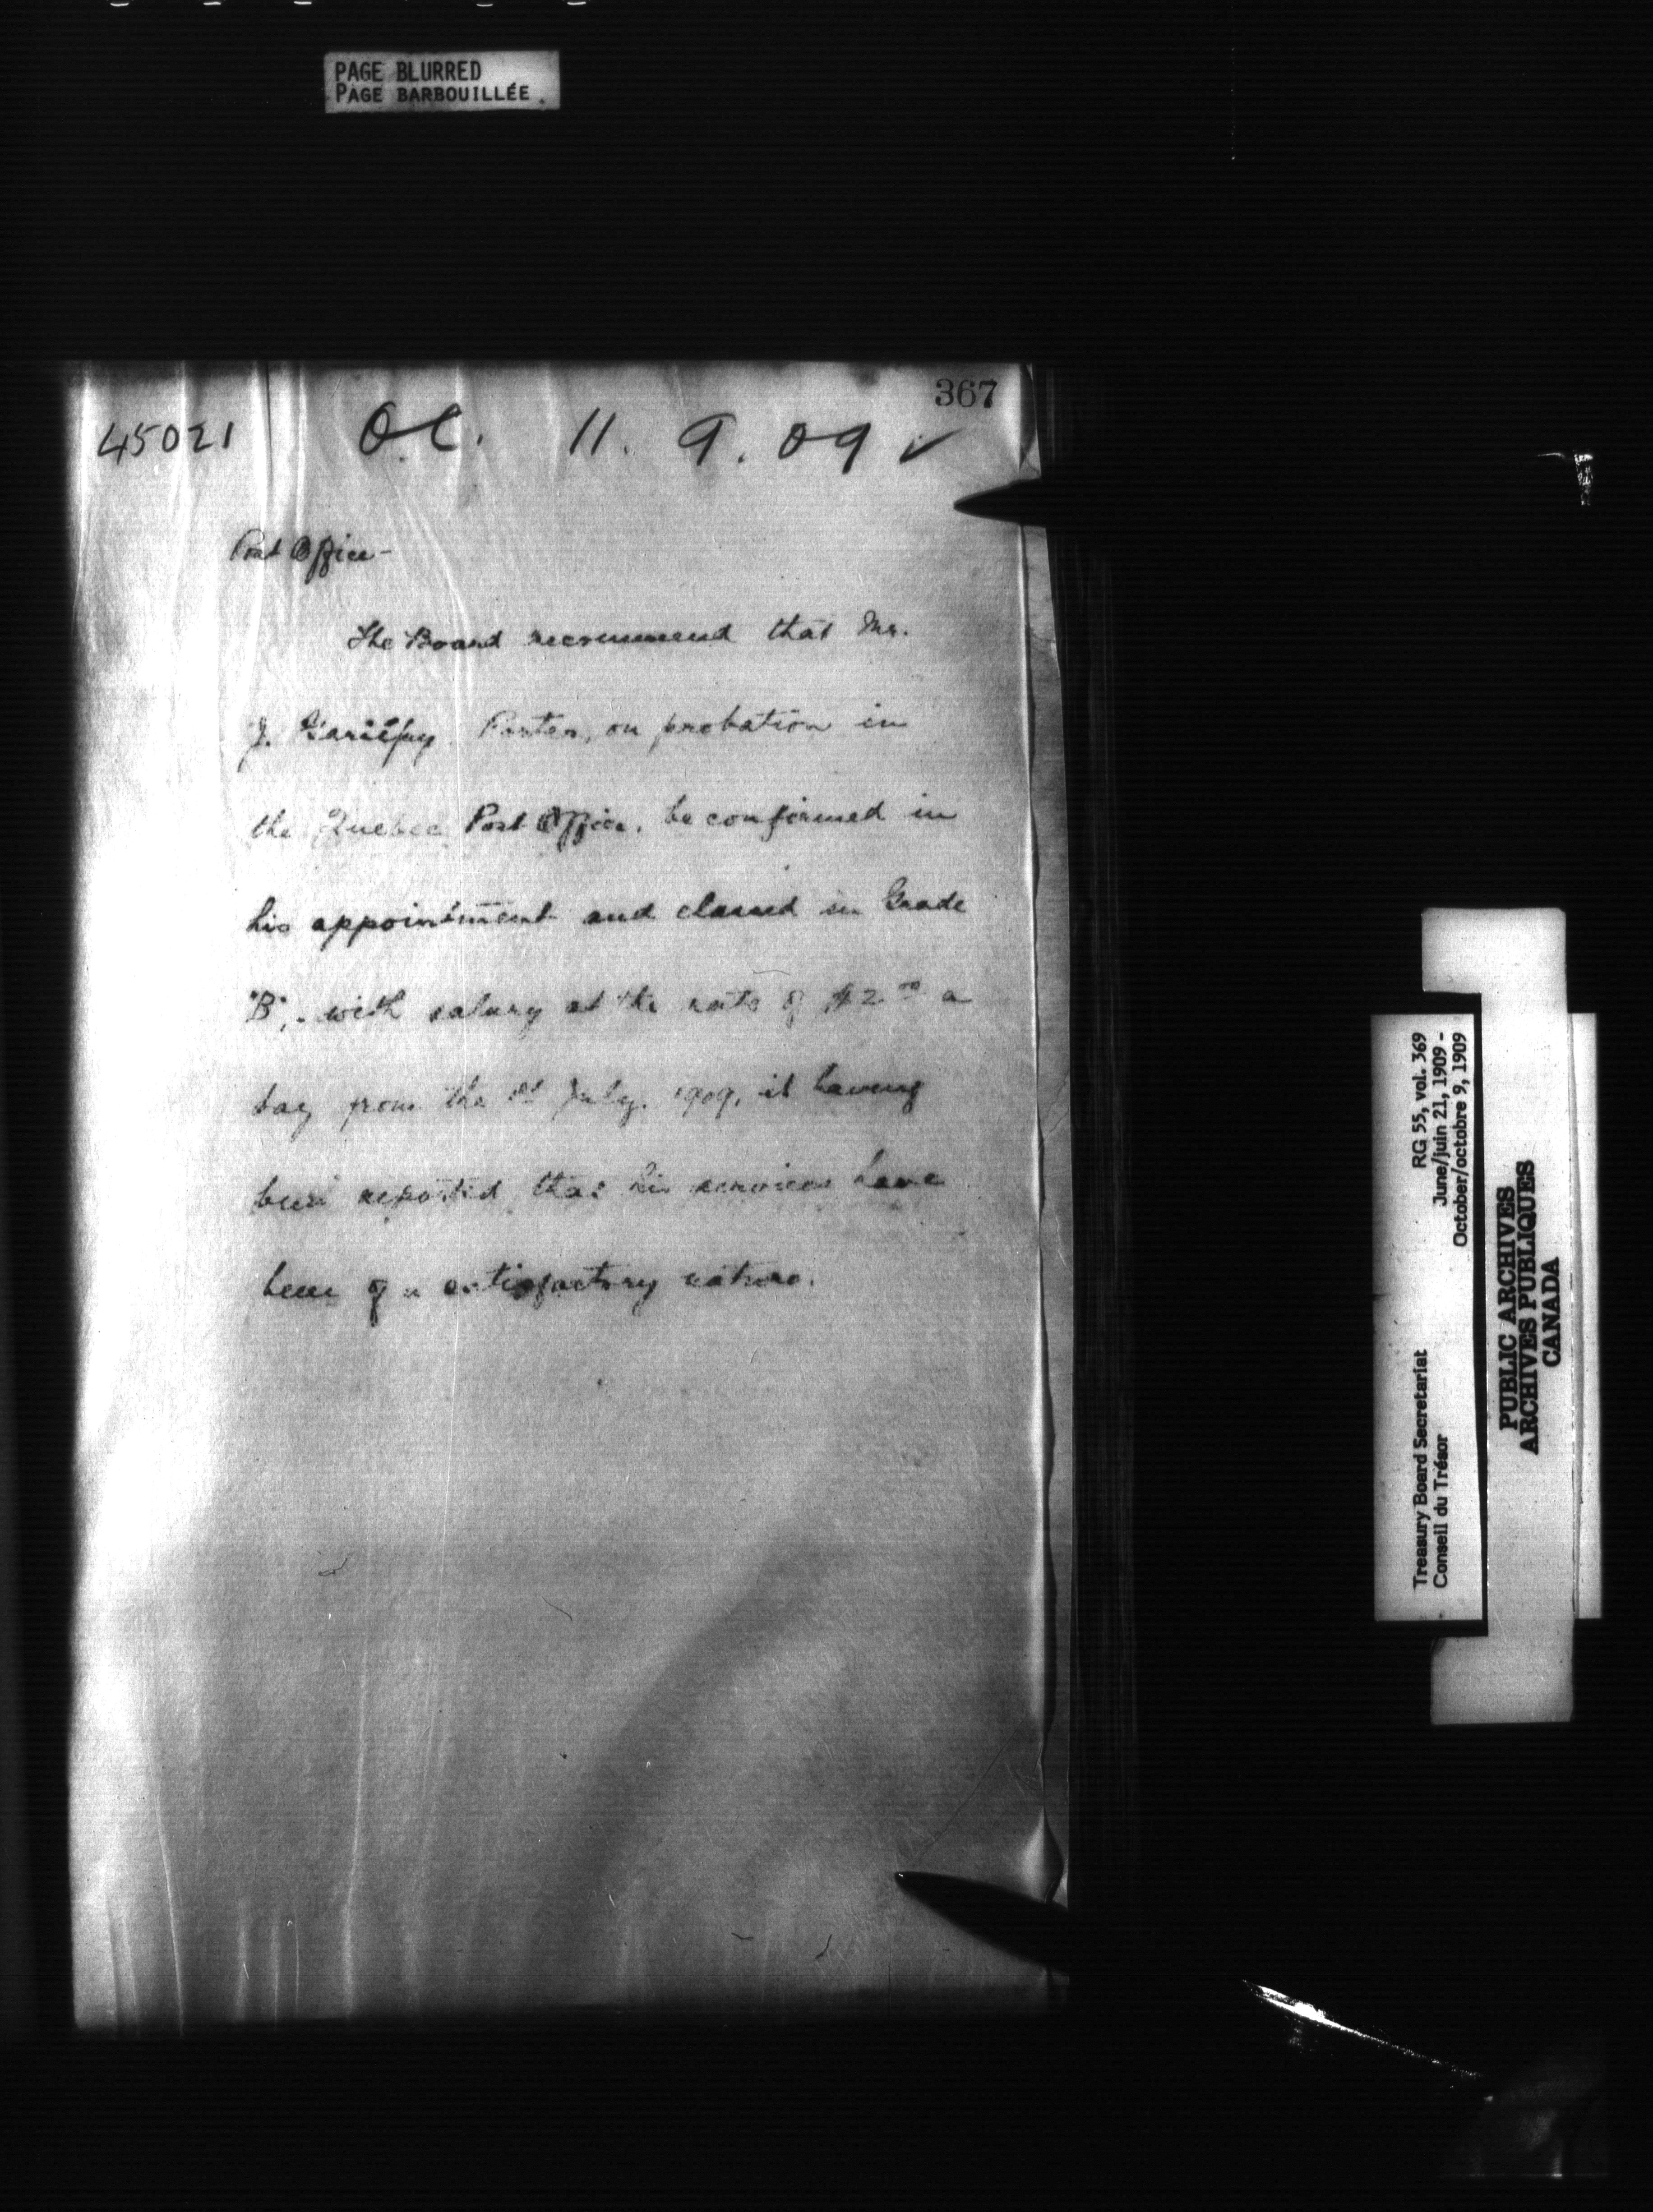 PAGE BLURRED
PAGE BARBOUILLÉE
367
45021 O.C. 11. 9. 09 ✓
Post Office -
The Board recommend that Mr.
J. Gariépy Porter, on probation in
the Quebec Post Office, be confirmed in
his appointment and classed in Grade
"B", - with salary at the rate of $2.00 a
day from the 1st July, 1909, it having
been reported that his services have
been of a satisfactory nature.
Treasury Board Secretariat RG 55, vol. 369
Conseil du Trésor June/juin 21, 1909 -
October/octobre 9, 1909
PUBLIC ARCHIVES
ARCHIVES PUBLIQUES
CANADA